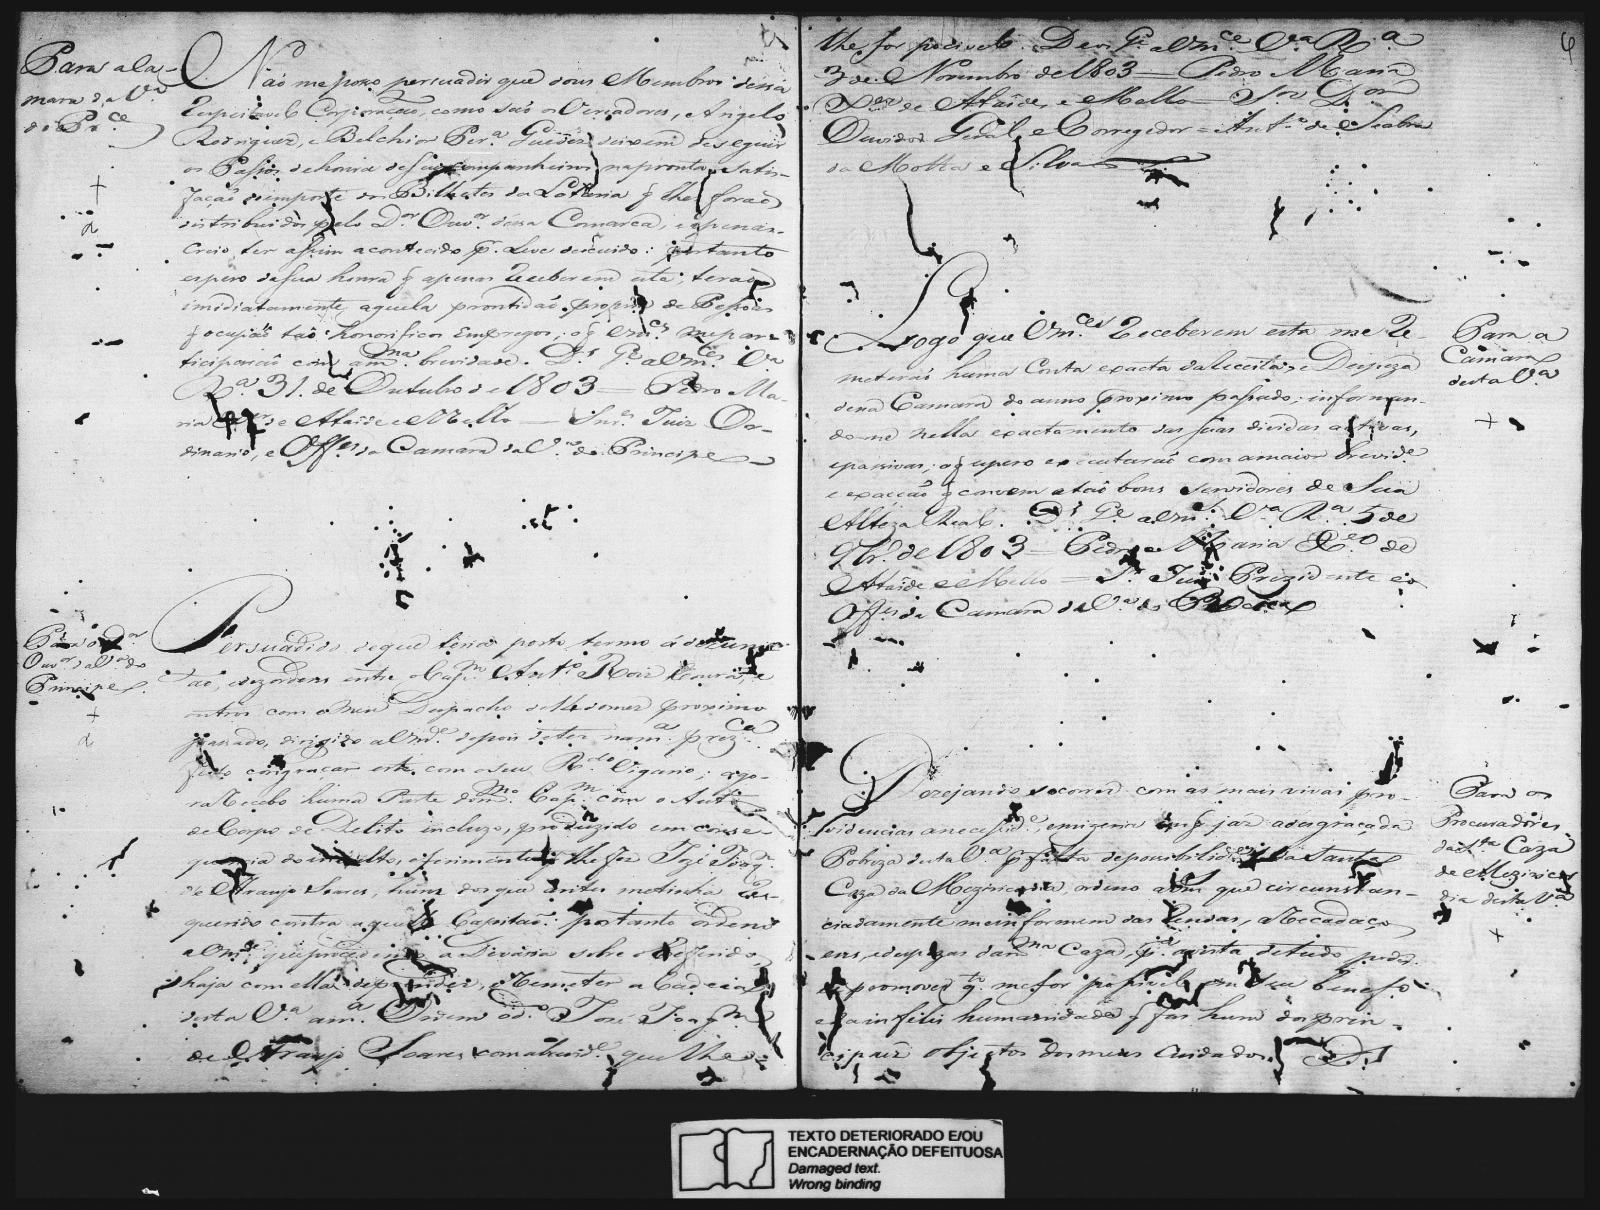 Para a Ca-
mara da Va
do Pr.ce
Não me posso persuadir que dous Membros dessa
Respeitavel Corporação, como saó os Veriadores, Angelo
Rodrigues, e Belchior Per.a Guedes deixem de seguir
os Passos de honra de seus companheiros na pronta satis-
façaõ do importe dos Bilhetes da Loteria q̃ lhe foraõ
distribuidos pelo D.or Ouv.or dessa Comarca, e apenas
creio ter assim acontecido p.r Leve descuido: portanto
espero da sua honra q̃ apenas Receberem esta, teraõ
imidiatamente aquela prontidaõ propria de Pessoas
q̃ ocupaõ taõ honorificos Empregos, o q̃ Vm.ces me par-
ticiparaõ com a m.ma brevidade. D.s G.e a Vm.ces V.a
R.a 31. de Outubro de 1803 = Pedro Ma-
ria Xer de Ataide e Mello = Snr.es Juiz Or-
dinario, e Off.es da Camara da V.a do Principe
Para o D.or
Ouv.or da V.a do
Principe
Persuadido de que teria posto termo á
entre o Cap.m Ant.o Roiz Coura, e
outros com o meu Despacho de 14 do mez proximo
passado, dirigido a Vm.ce depois de ter na m.a prez.ca
feito congraçar este com o seu R.do Vigario; ago-
ra Recebo huma Parte do m.mo Cap.m com o Auto
de Corpo de Delito incluzo, produzido em conse-
quencia do insulto, e ferimentos q̃ lhe fez Joze Joaq.m
de Araujo Soares, hum dos que antes me tinha Re-
querido contra aquele Capitaõ: portanto ordeno
a Vm.ce q̃ procedendo a Devassa sobre o Referido,
haja com ella de proceder, e Remeter a Cadeia
desta V.a a m.a Ordem o d.o José Joaq.m
de Araujo Soares, com a brevid.e que lhe
6
lhe for pocivel. Deos G.e a Vm.ce V.a R.a
3 de Novembro de 1803 = Pedro Maria
Xer de Ataide, e Mello = Snr. D.or
Ouvidor Geral, e Corregedor = Ant.o de Seabra
da Motta e Silva
Para a
Camara
desta V.a
Logo que Vm.ces Receberem esta me Re-
meteraõ huma Conta exacta da Receita, e Despeza
dessa Camara do anno proximo passado; informan-
do-me nella exactamente das suas dividas activas,
e passivas; o q̃ espero executaraõ com a maior brevid.e
e exacçaõ q̃ convem a taõ bons servidores de Sua
Alteza Real. D.s G.e a Vm.ces V.a R.a 5 de
9br.o de 1803 = Pedro Maria Xer de
Ataide e Mello = Snr. Juiz Prezidente e
Off.es da Camara da V.a
Para os
Procuradores
da S.ta Caza
de Miziricor
dia desta V.a
Dezejando socorrer com as mais vivas pro-
videncias a necessid.e, e mizeria em q̃ jaz a desgraçada
Pobreza desta V.a p.r falta de possibilid.es da Santa
Caza da Mizericordia, ordeno a Vm.ces que circunstan-
ciadamente me informem das Rendas, Arecadaço-
ens, e despezas da m.ma Caza, p.a a vista de tudo poder
promover q.to me for possivel em seu benef.o
e da infeliz humanidade q̃ faz hum dos prin-
cipaes objectos dos meus Cuidados. D.s
TEXTO DETERIORADO E/OU
ENCADERNAÇÃO DEFEITUOSA
Damaged text.
Wrong binding